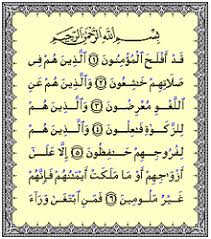 بِسْمِ اللَّهِ الرَّحْمَٰنِ الرَّحِيمِ
قَدْ أَفْلَحَ الْمُؤْمِنُونَ ١ الَّذِينَ هُمْ فِي
صَلَاتِهِمْ خَاشِعُونَ ٢ وَالَّذِينَ هُمْ عَنِ
اللَّغْوِ مُعْرِضُونَ ٣ وَالَّذِينَ هُمْ
لِلزَّكَوٰةِ فَاعِلُونَ ٤ وَالَّذِينَ هُمْ
لِفُرُوجِهِمْ حَافِظُونَ ٥ إِلَّا عَلَىٰ
أَزْوَاجِهِمْ أَوْ مَا مَلَكَتْ أَيْمَانُهُمْ فَإِنَّهُمْ
غَيْرُ مَلُومِينَ ٦ فَمَنِ ابْتَغَىٰ وَرَاءَ